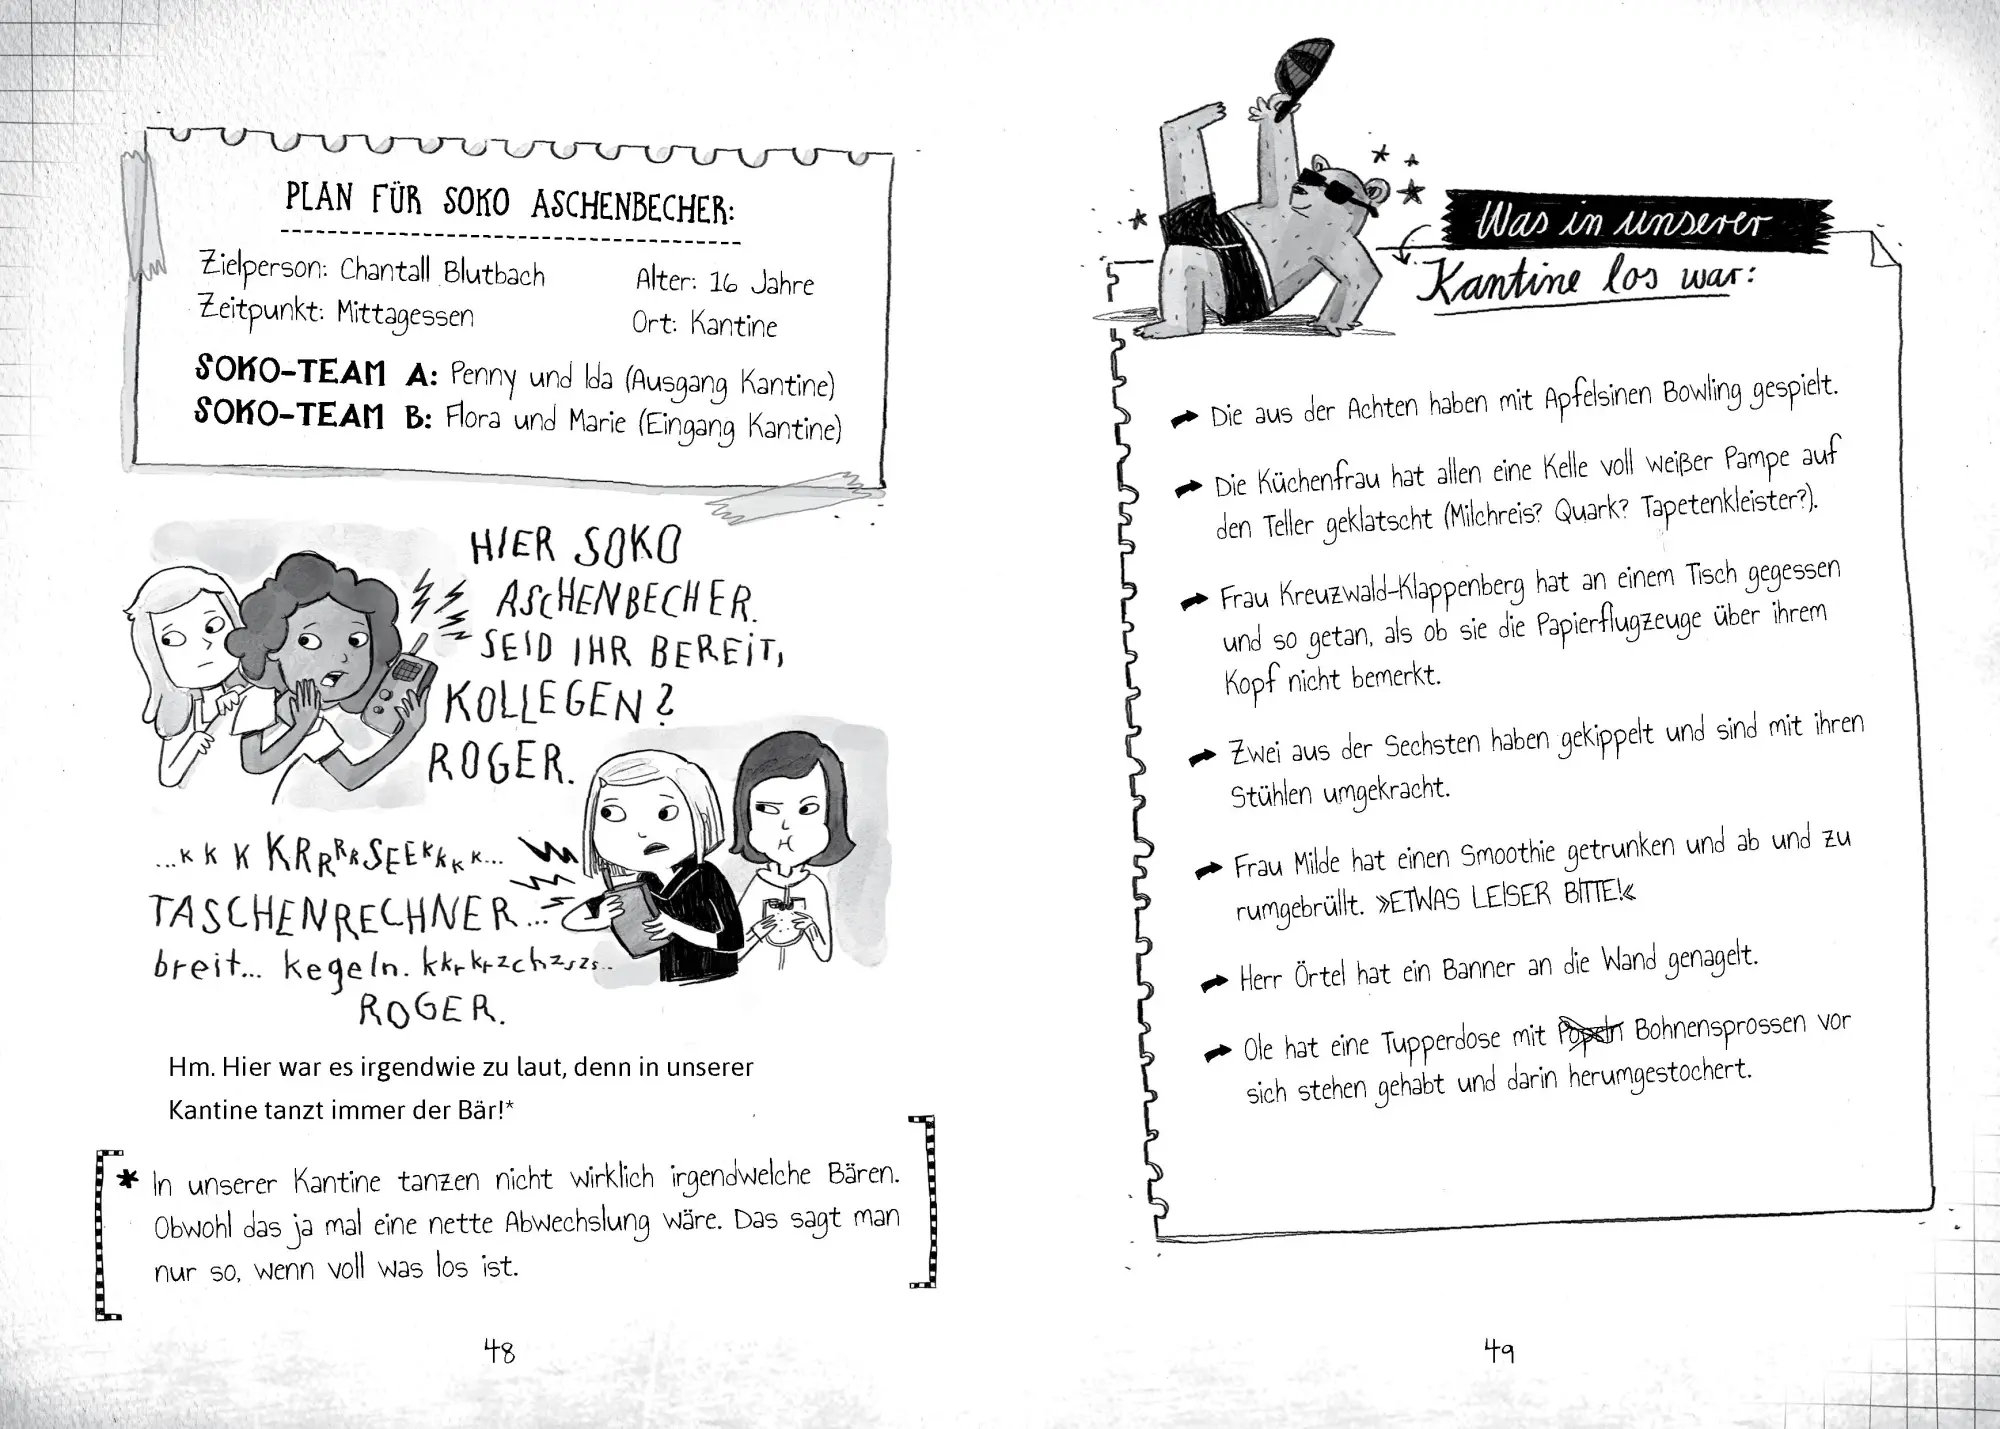 PLAN FÜR SOKO ASCHENBECHER:
Zielperson: Chantall Blutbach Alter: 16 Jahre
Zeitpunkt: Mittagessen Ort: Kantine
SOKO-TEAM A: Penny und Ida (Ausgang Kantine)
SOKO-TEAM B: Flora und Marie (Eingang Kantine)
HIER SOKO
ASCHENBECHER.
SEID IHR BEREIT,
KOLLEGEN?
ROGER.
...K K K KRRRRSEEKKKK...
TASCHENRECHNER...
breit... kegeln. kkrkrzchzszs..
ROGER.
Hm. Hier war es irgendwie zu laut, denn in unserer
Kantine tanzt immer der Bär!*
* In unserer Kantine tanzen nicht wirklich irgendwelche Bären.
Obwohl das ja mal eine nette Abwechslung wäre. Das sagt man
nur so, wenn voll was los ist.
48
Was in unserer
Kantine los war:
Die aus der Achten haben mit Apfelsinen Bowling gespielt.
Die Küchenfrau hat allen eine Kelle voll weißer Pampe auf
den Teller geklatscht (Milchreis? Quark? Tapetenkleister?).
Frau Kreuzwald-Klappenberg hat an einem Tisch gegessen
und so getan, als ob sie die Papierflugzeuge über ihrem
Kopf nicht bemerkt.
Zwei aus der Sechsten haben gekippelt und sind mit ihren
Stühlen umgekracht.
Frau Milde hat einen Smoothie getrunken und ab und zu
rumgebrüllt. »ETWAS LEISER BITTE!«
Herr Örtel hat ein Banner an die Wand genagelt.
Ole hat eine Tupperdose mit Popeln Bohnensprossen vor
sich stehen gehabt und darin herumgestochert.
49